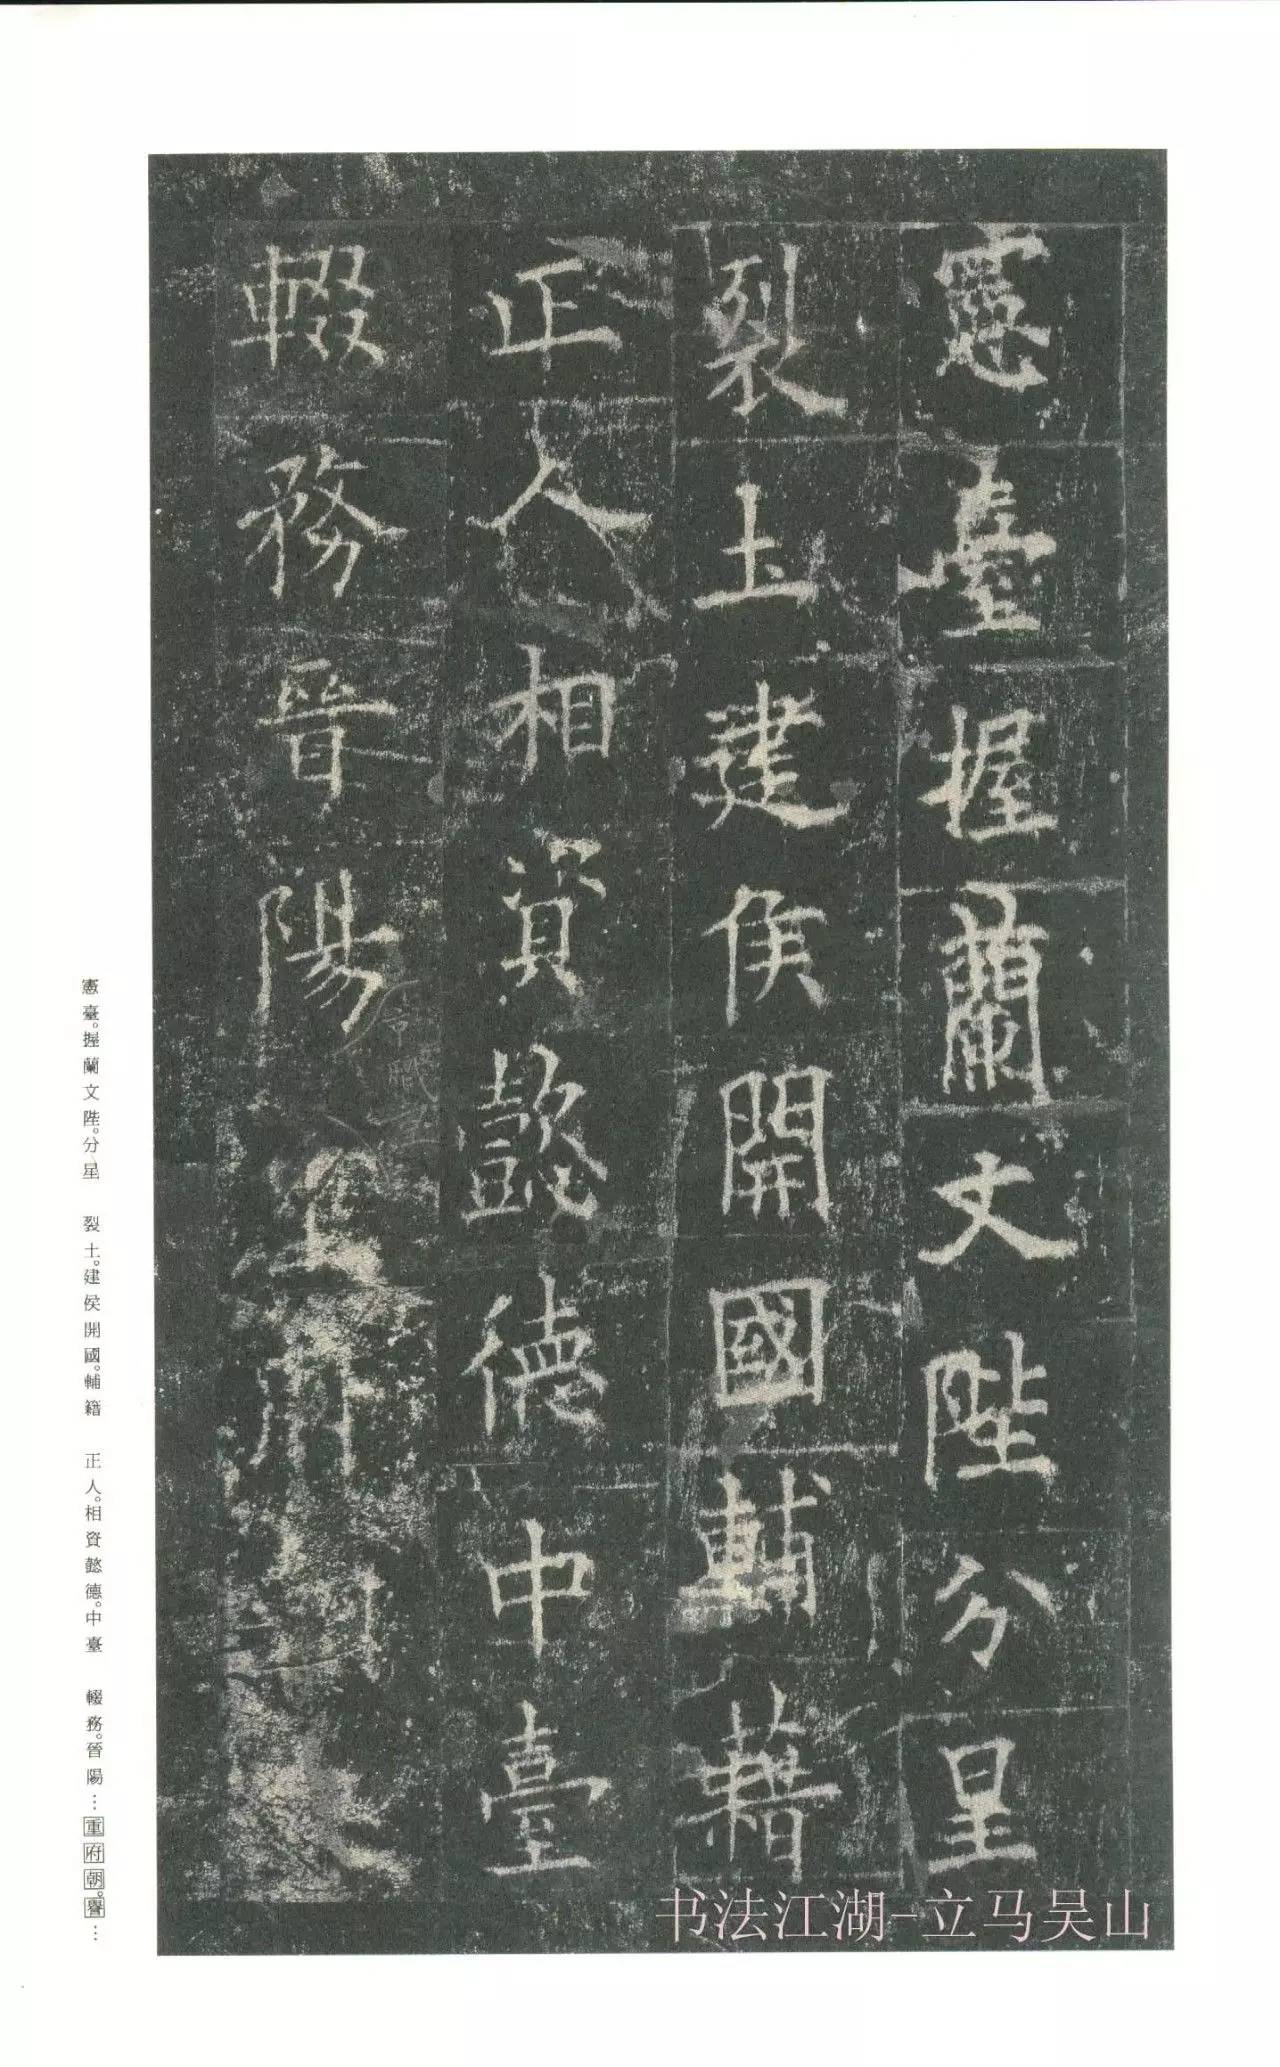 憲臺握蘭文陛分星
裂土建侯開國輔藉
正人相資懿德中臺
輟務晉陽
憲臺。握蘭文陛。分星　裂土。建侯開國。輔籍　正人。相資懿德。中臺　輟務。晉陽…重府朝。譽…
书法江湖-立马吴山